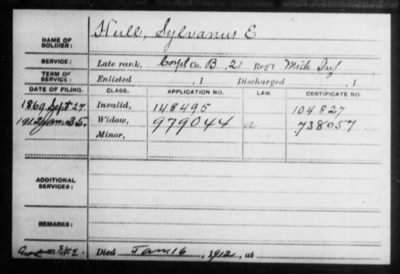 NAME OF SOLDIER: Hull, Sylvanus E
SERVICE: Late rank, Corpl Co. B, 2 Reg't Mich Inf
TERM OF SERVICE: Enlisted , 1 Discharged , 1
DATE OF FILING. CLASS. APPLICATION NO. LAW. CERTIFICATE NO.
1869 Sept 27 Invalid, 148495 104827
1912 Jan 25 Widow, 979044 738057
Minor,
ADDITIONAL SERVICES:
REMARKS:
Died Jan 16, 1912, at